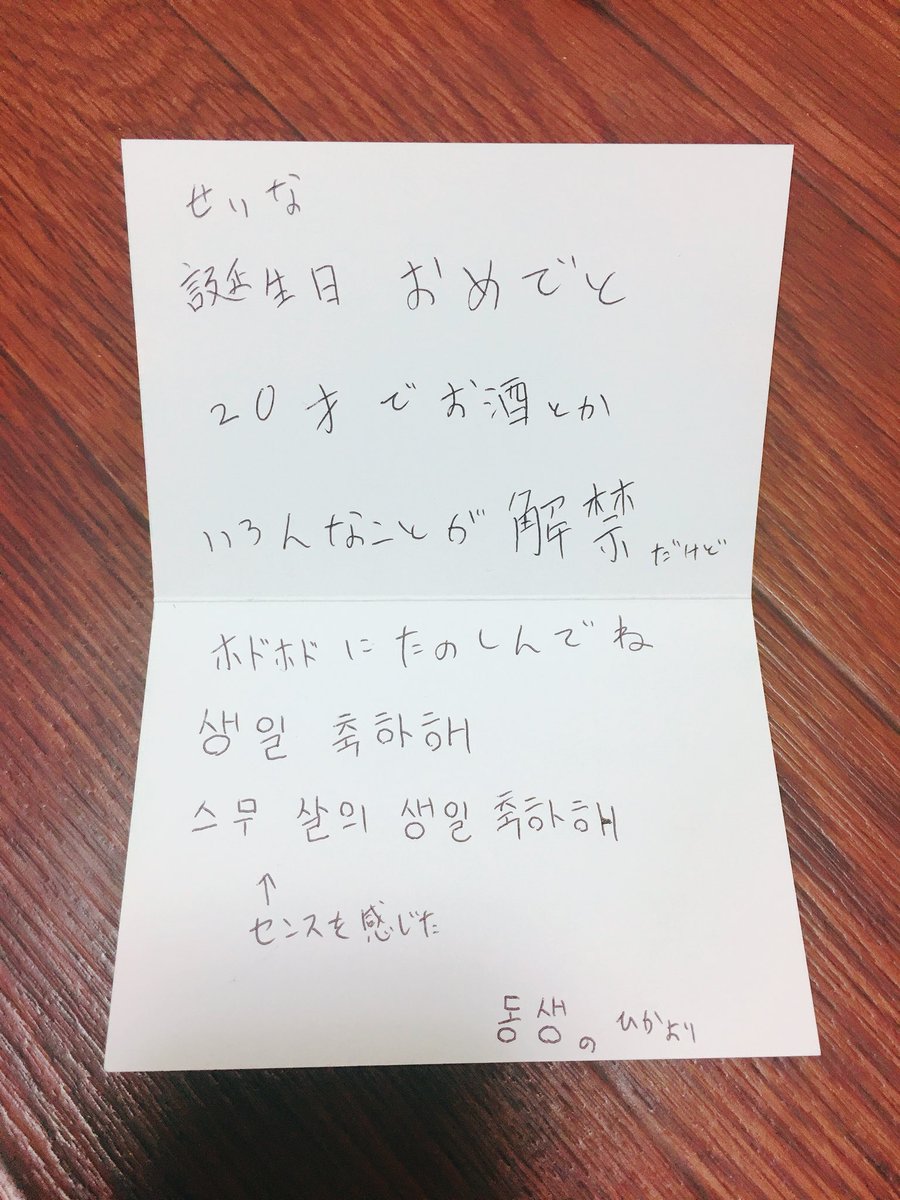 せいな
誕生日 おめでと
20才でお酒とか
いろんなことが解禁だけど
ホドホドにたのしんでね
생일 축하해
스무 살의 생일 축하해
↑
センスを感じた
동생の ひかより